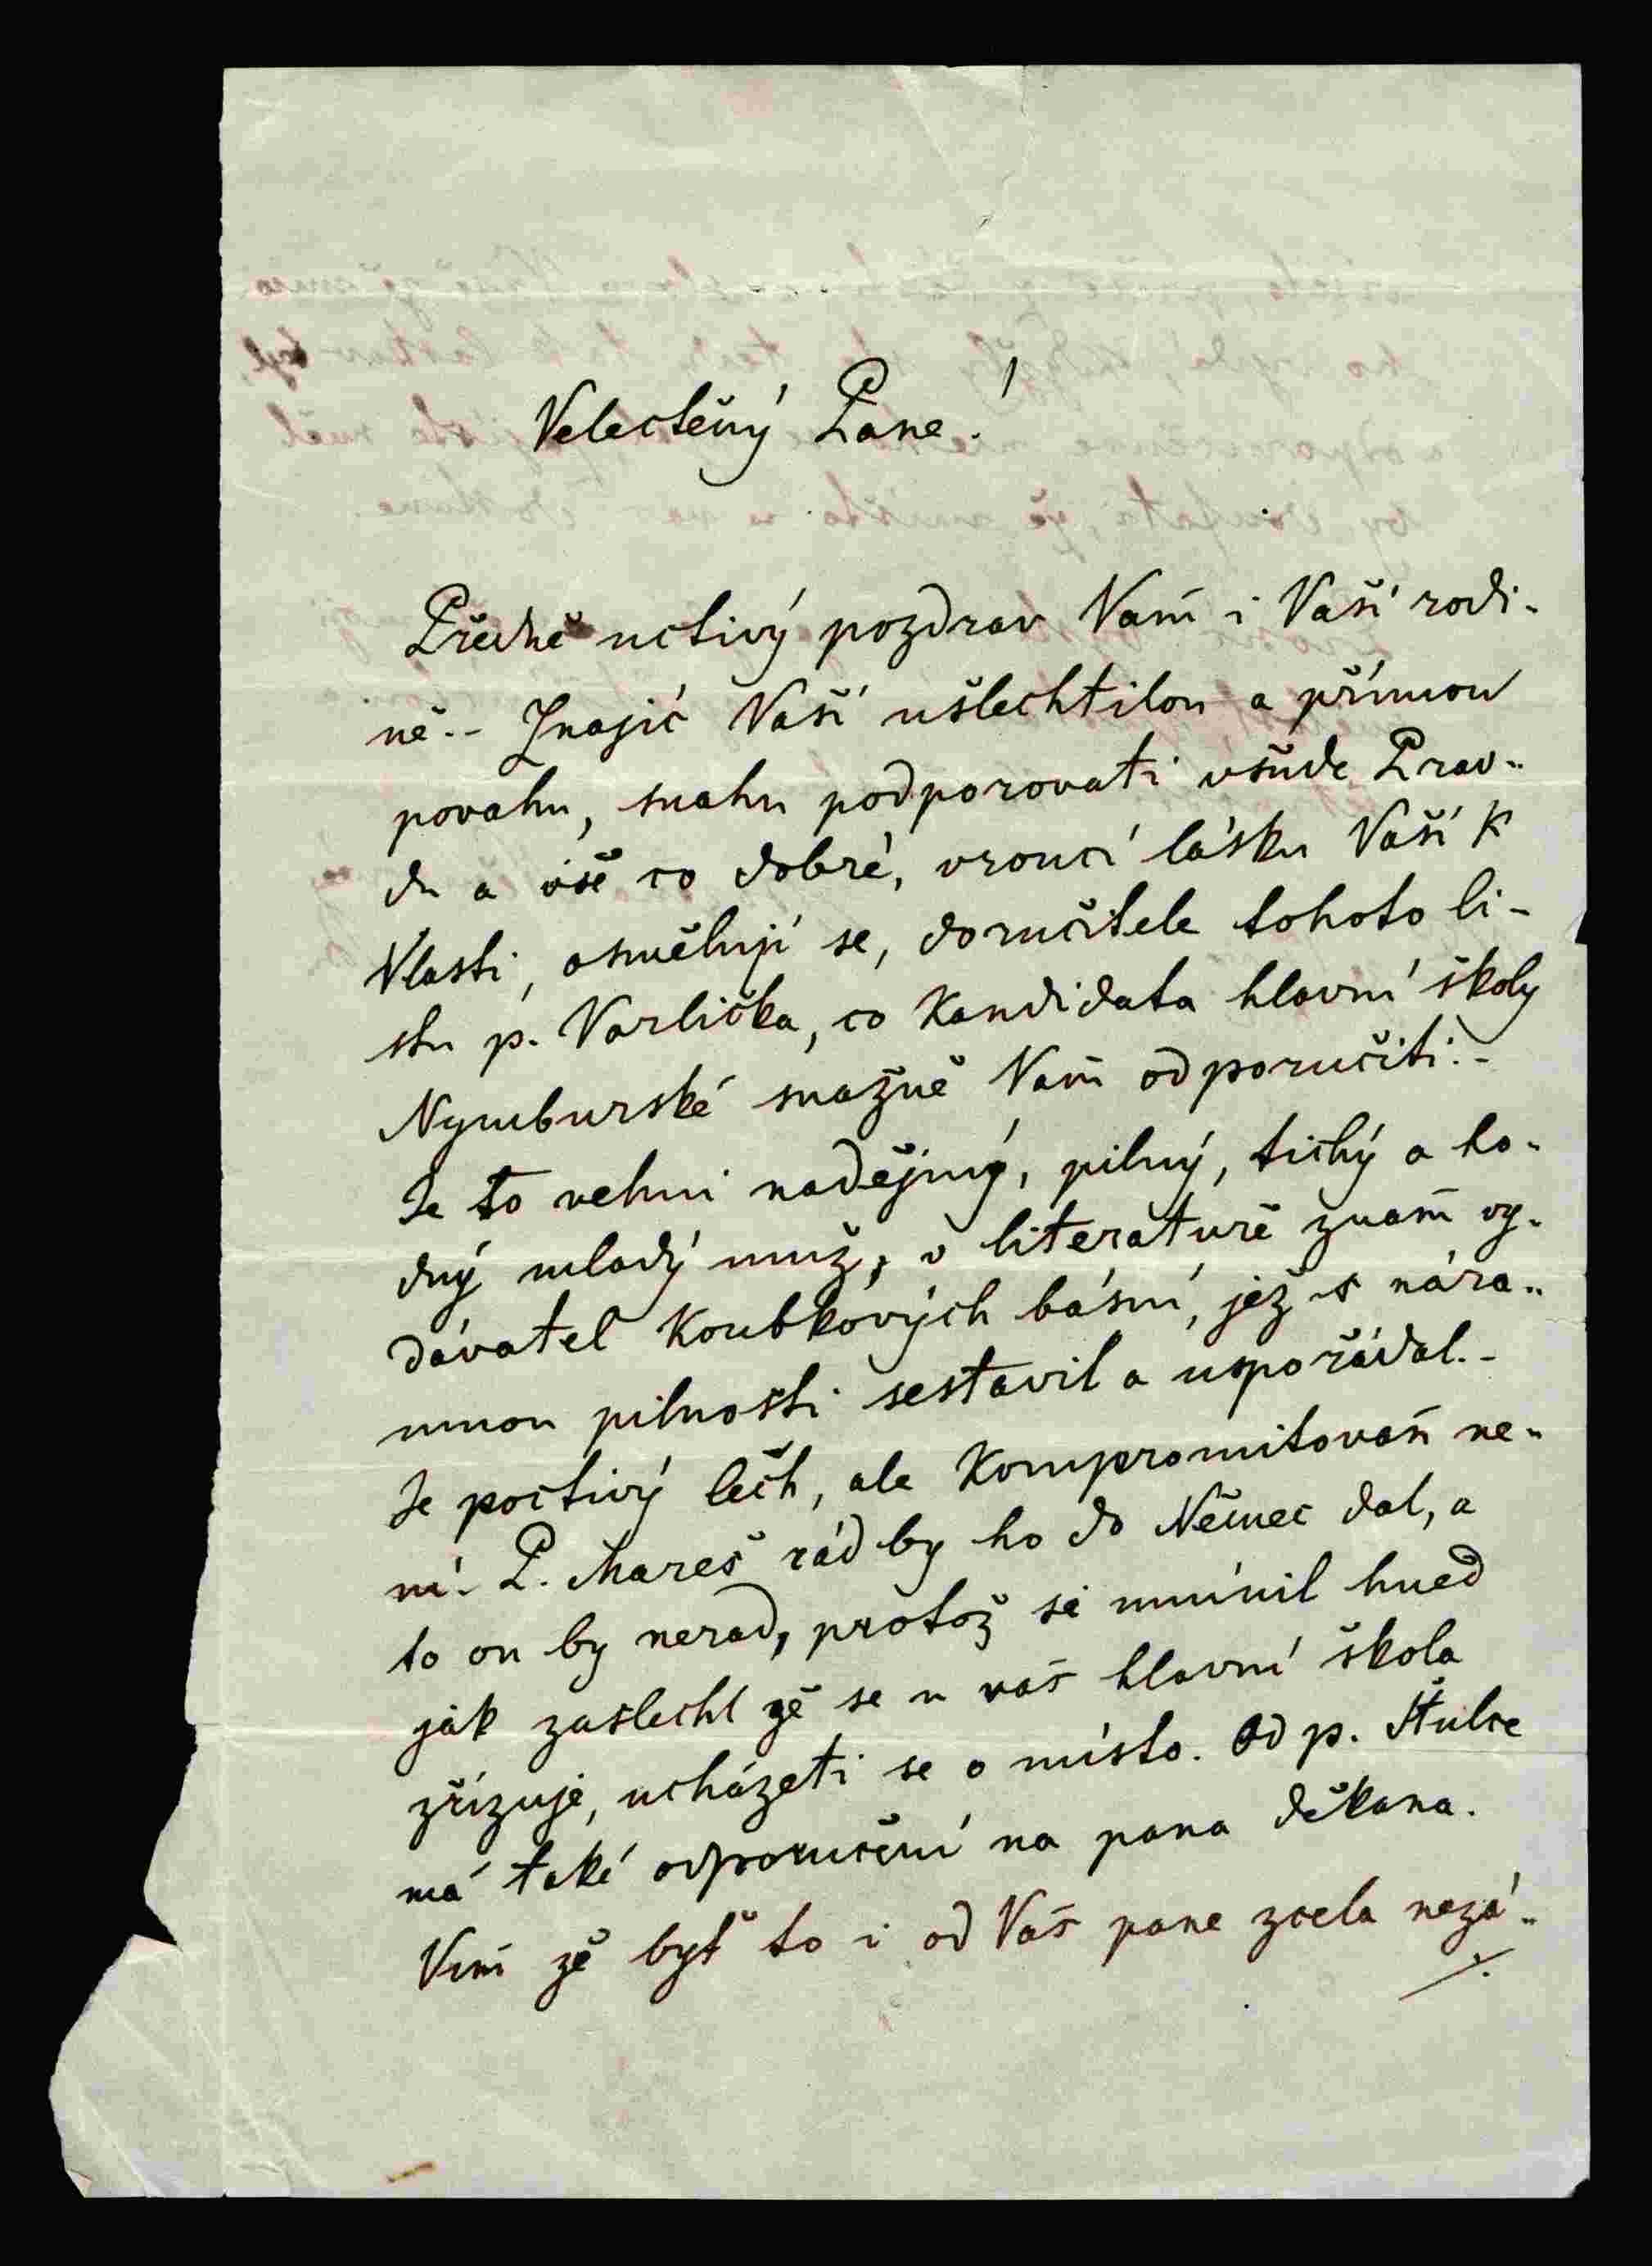 Velectěný Pane!
Předně uctivý pozdrav Vam i Vaší rodi-
ně.- Znajíc Vaší ušlechtilou a přímou
povahu, snahu podporovati všude Prav-
du a vše co dobré, vroucí lásku Vaší k
Vlasti, osmělují se, doručitele tohoto li-
stu p. Vorlička, co Kandidata hlavní školy
Nymburské snažně Vam odporučiti.-
Je to velmi nadějný, pilný, tichý a ho-
dný mladý muž, v literatuře znam vy-
davatel Koubkových básní, jež s nára-
mnou pilností sestavil a uspořádal.-
Je poctivý čech, ale Kompromitovan ne-
ní. P. Mareš rád by ho do Němec dal, a
to on by nerad, protož si umínil hned
jak zaslechl že se u vás hlavní škola
zřizuje, ucházeti se o místo. Od p. Štulce
má také odporučení na pana děkana.
Vím že byť to i od Vás pane zcela nezá-
./.